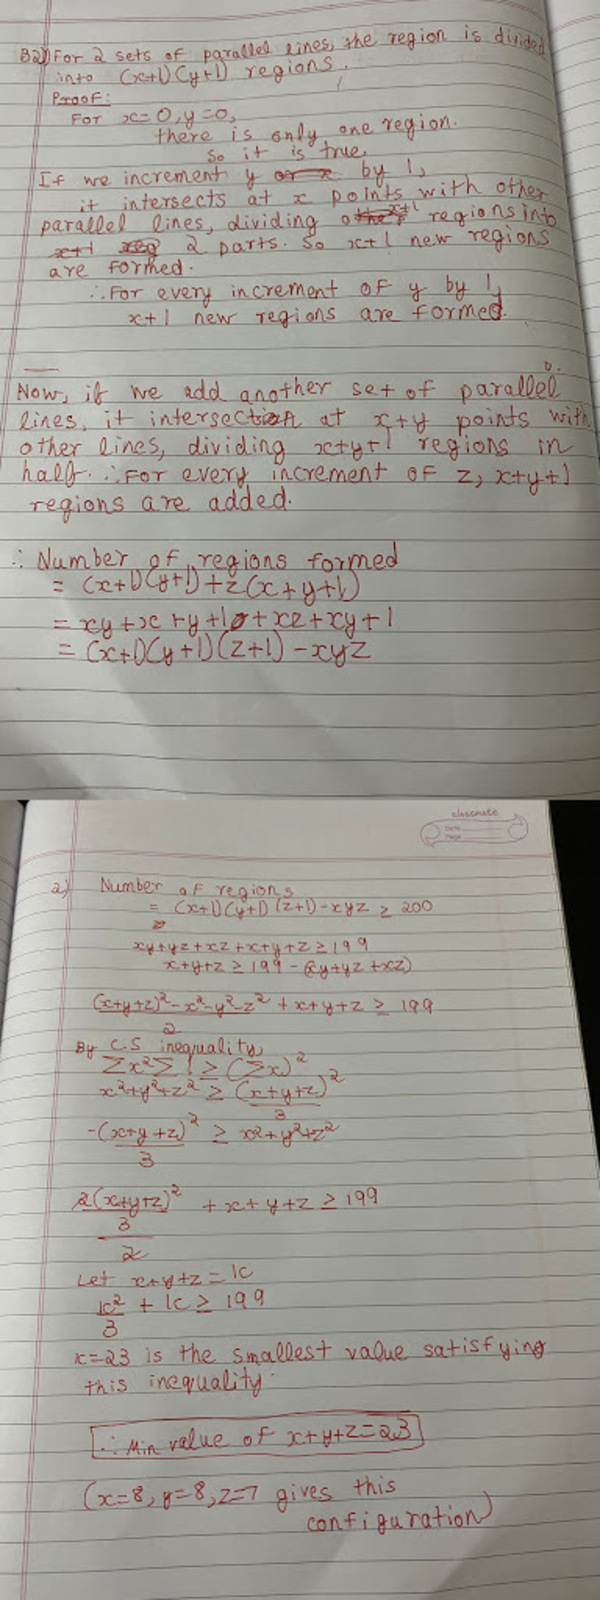 B2) For 2 sets of parallel lines, the region is divided
into (x+1)(y+1) regions.
Proof:
For x=0, y=0,
there is only one region.
So it is true.
If we increment y by 1,
it intersects at x points with other
parallel lines, dividing x+1 regions into
2 parts. So x+1 new regions
are formed.
∴ For every increment of y by 1,
x+1 new regions are formed.
Now, if we add another set of parallel
lines, it intersection at x+y points with
other lines, dividing x+y+1 regions in
half. ∴ For every increment of z, x+y+1
regions are added.
∴ Number of regions formed
= (x+1)(y+1)+z(x+y+1)
= xy+x+y+1+xz+xy+1
= (x+1)(y+1)(z+1)-xyz
classmate
Date
Page
2) Number of regions
= (x+1)(y+1)(z+1)-xyz ≥ 200
xy+yz+xz+x+y+z ≥ 199
x+y+z ≥ 199-(xy+yz+xz)
(x+y+z)²-x²-y²-z² + x+y+z ≥ 199
2
By C.S inequality,
Σx²Σ1 ≥ (Σx)²
x²+y²+z² ≥ (x+y+z)²
3
-(x+y+z)² ≥ x²+y²+z²
3
2(x+y+z)² + x+y+z ≥ 199
3
2
Let x+y+z=k
k² + k ≥ 199
3
k=23 is the smallest value satisfying
this inequality.
∴ Min value of x+y+z=23
(x=8, y=8, z=7 gives this
configuration)